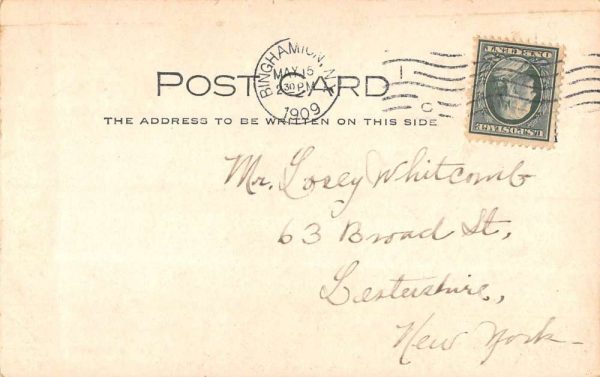 BINGHAMTON, N.Y.
MAY 15
2 30 P.M.
1909
POST CARD
THE ADDRESS TO BE WRITTEN ON THIS SIDE
U.S. POSTAGE
ONE CENT
Mr. Losey Whitcomb
63 Broad St,
Lestershire,
New York-